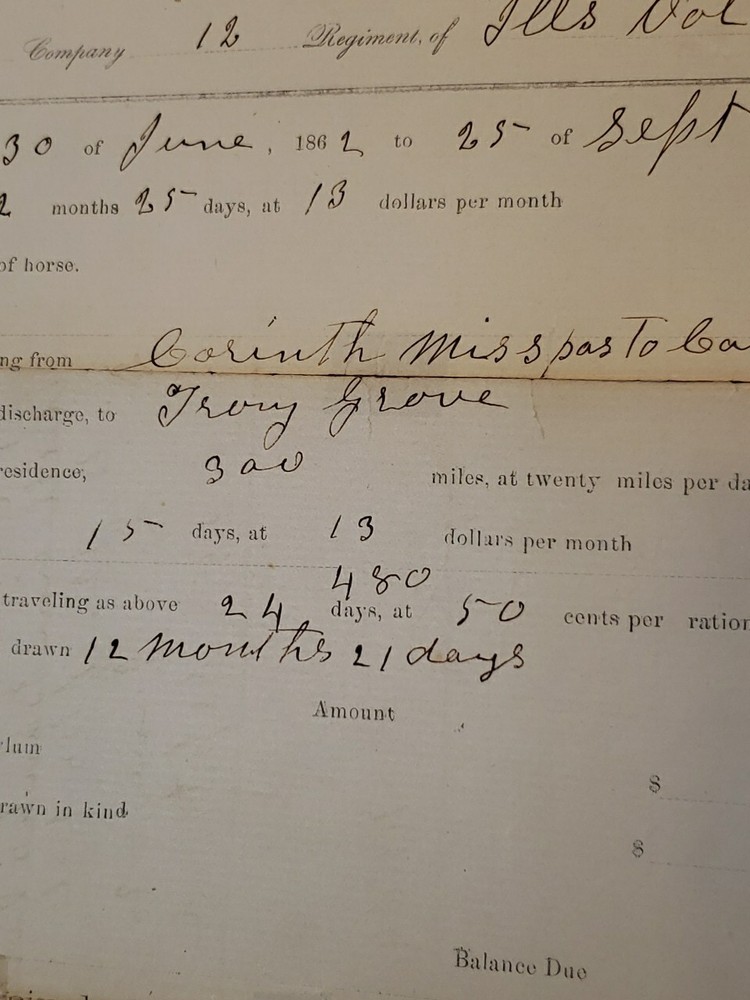 Company 12 Regiment, of Ills Vol
30 of June, 1862 to 25 of Sept
2 months 25 days, at 13 dollars per month
of horse.
ng from Corinth Miss pas To Ca
discharge, to Troy Grove
residence, 300 miles, at twenty miles per da
15 days, at 13 dollars per month
480
traveling as above 24 days, at 50 cents per ration
drawn 12 months 21 days
Amount
lum
$
rawn in kind
$
Balance Due